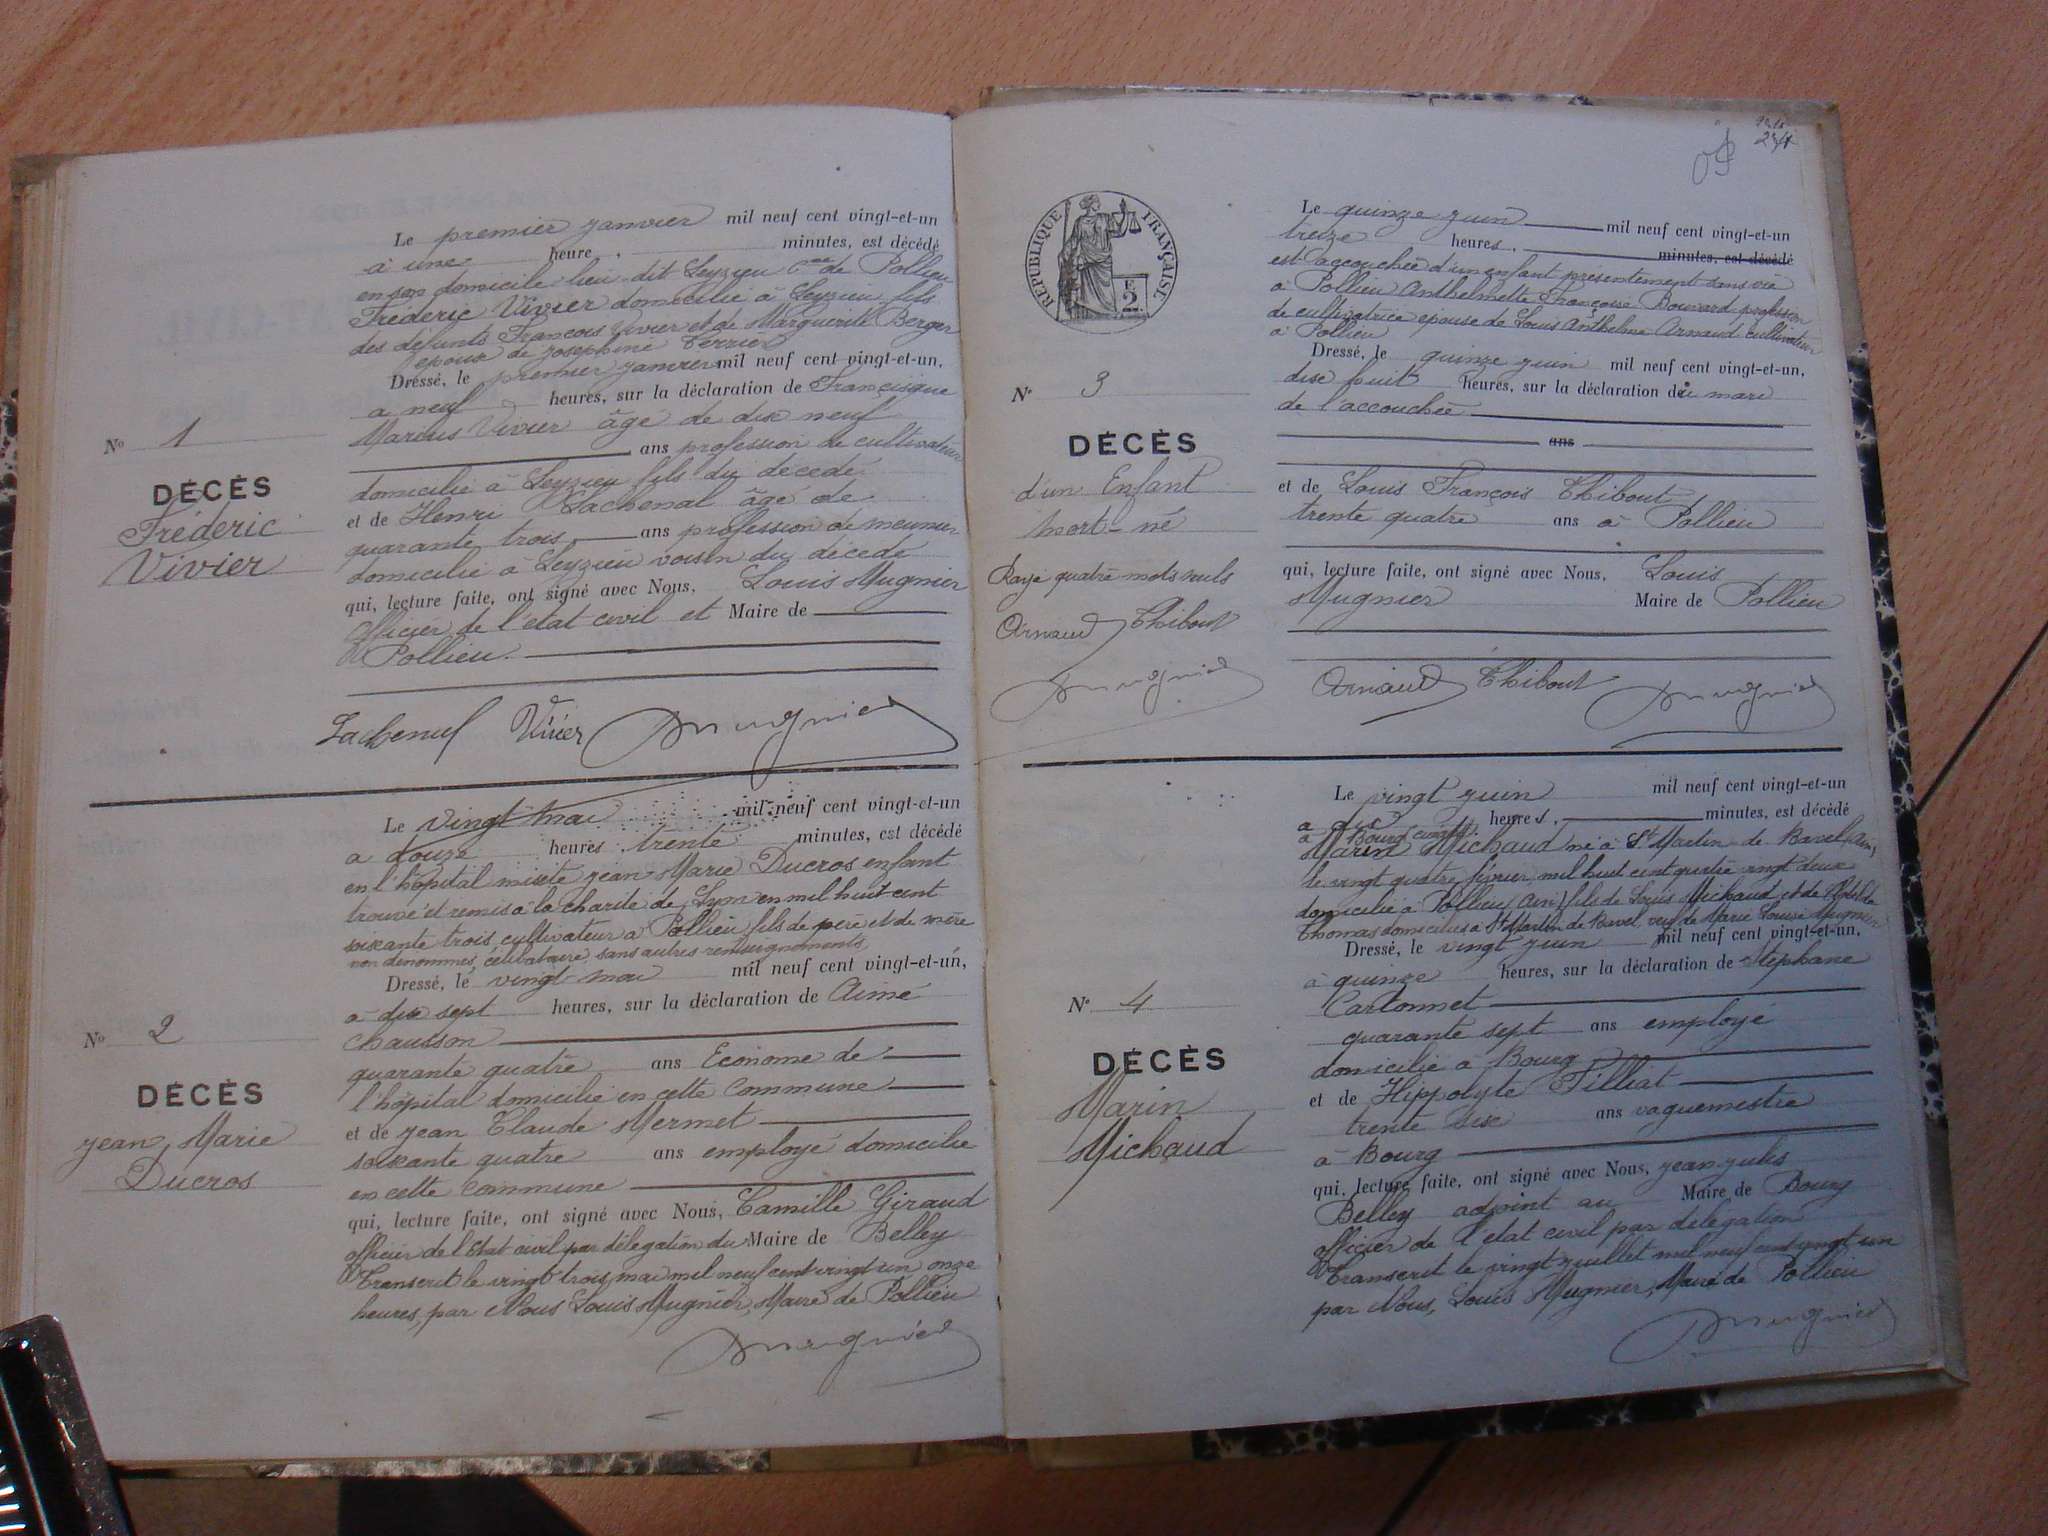 Le premier janvier mil neuf cent vingt-et-un
à une heure, minutes, est décédé
en son domicile lieu dit Leyzieu Cne de Pollieu
Fréderic Vivier domicilié à Leyzieu fils
des défunts François Vivier et de Marguerite Berger
époux de Joséphine Terrier
Dressé, le premier janvier mil neuf cent vingt-et-un,
a neuf heures, sur la déclaration de Francisque
Marius Vivier âgé de dix neuf
ans profession de cultivateur
domicilié à Leyzieu fils du décédé
et de Henri Lachenal âgé de
quarante trois ans profession de meunier
domicilié à Leyzieu voisin du décédé
qui, lecture faite, ont signé avec Nous, Louis Mugnier
officier de l'état civil et Maire de
Pollieu.
No 1
DÉCÈS
Fréderic
Vivier
Lachenal Vivier Mugnier
Le vingt mai mil neuf cent vingt-et-un
a douze heures trente minutes, est décédé
en l'hôpital mixte Jean Marie Ducros enfant
trouvé et remis à la charité de Lyon en mil huit cent
soixante trois, cultivateur à Pollieu, fils de père et de mère
non dénommés, célibataire, sans autres renseignements
Dressé, le vingt mai mil neuf cent vingt-et-un,
à dix sept heures, sur la déclaration de Aimé
Chausson
quarante quatre ans Econome de
l'hôpital domicilié en cette commune
et de Jean Claude Mermet
soixante quatre ans employé domicilié
en cette commune
qui, lecture faite, ont signé avec Nous, Camille Giraud
officier de l'Etat civil par délégation du Maire de Belley
Transcrit le vingt trois mai mil neuf cent vingt un onze
heures, par Nous Louis Mugnier, Maire de Pollieu
No 2
DÉCÈS
Jean Marie
Ducros
Mugnier
241
RÉPUBLIQUE FRANÇAISE.
E
2.
Le quinze juin mil neuf cent vingt-et-un
treize heures, minutes, est décédé
est accouchée d'un enfant présentement sans vie
à Pollieu Anthelmette Françoise Bouvard profession
de cultivatrice épouse de Louis Anthelme Arnaud cultivateur
à Pollieu
Dressé, le quinze juin mil neuf cent vingt-et-un,
dix huit heures, sur la déclaration du mari
de l'accouchée
ans
et de Louis François Thibout
trente quatre ans à Pollieu
qui, lecture faite, ont signé avec Nous, Louis
Mugnier Maire de Pollieu
No 3
DÉCÈS
d'un Enfant
mort-né
Rayé quatre mots nuls
Arnaud Thibout
Mugnier
Arnaud Thibout Mugnier
Le vingt juin mil neuf cent vingt-et-un
a dix heures, minutes, est décédé
à Bourg
Marin Michaud né à St Martin de Bavel (Ain)
le vingt quatre février mil huit cent quatre vingt deux
domicilié à Pollieu (Ain) fils de Louis Michaud et de Clotilde
Thomas domiciliés à St Martin de Bavel, veuf de Marie Louise Mugnier
Dressé, le vingt juin mil neuf cent vingt-et-un,
à quinze heures, sur la déclaration de Stéphane
Cartonnet
quarante sept ans employé
domicilié à Bourg
et de Hippolyte Tilliat
trente six ans vaguemestre
à Bourg
qui, lecture faite, ont signé avec Nous, Jean Jules
Belley adjoint au Maire de Bourg
officier de l'état civil par délégation
Transcrit le vingt juillet mil neuf cent vingt un
par Nous, Louis Mugnier, Maire de Pollieu
No 4
DÉCÈS
Marin
Michaud
Mugnier